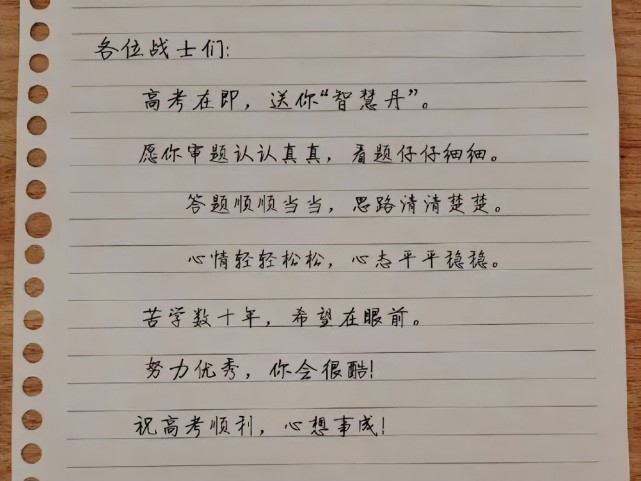 各位战士们:
高考在即，送你“智慧丹”。
愿你审题认认真真，看题仔仔细细。
答题顺顺当当，思路清清楚楚。
心情轻轻松松，心志平平稳稳。
苦学数十年，希望在眼前。
努力优秀，你会很酷!
祝高考顺利，心想事成!